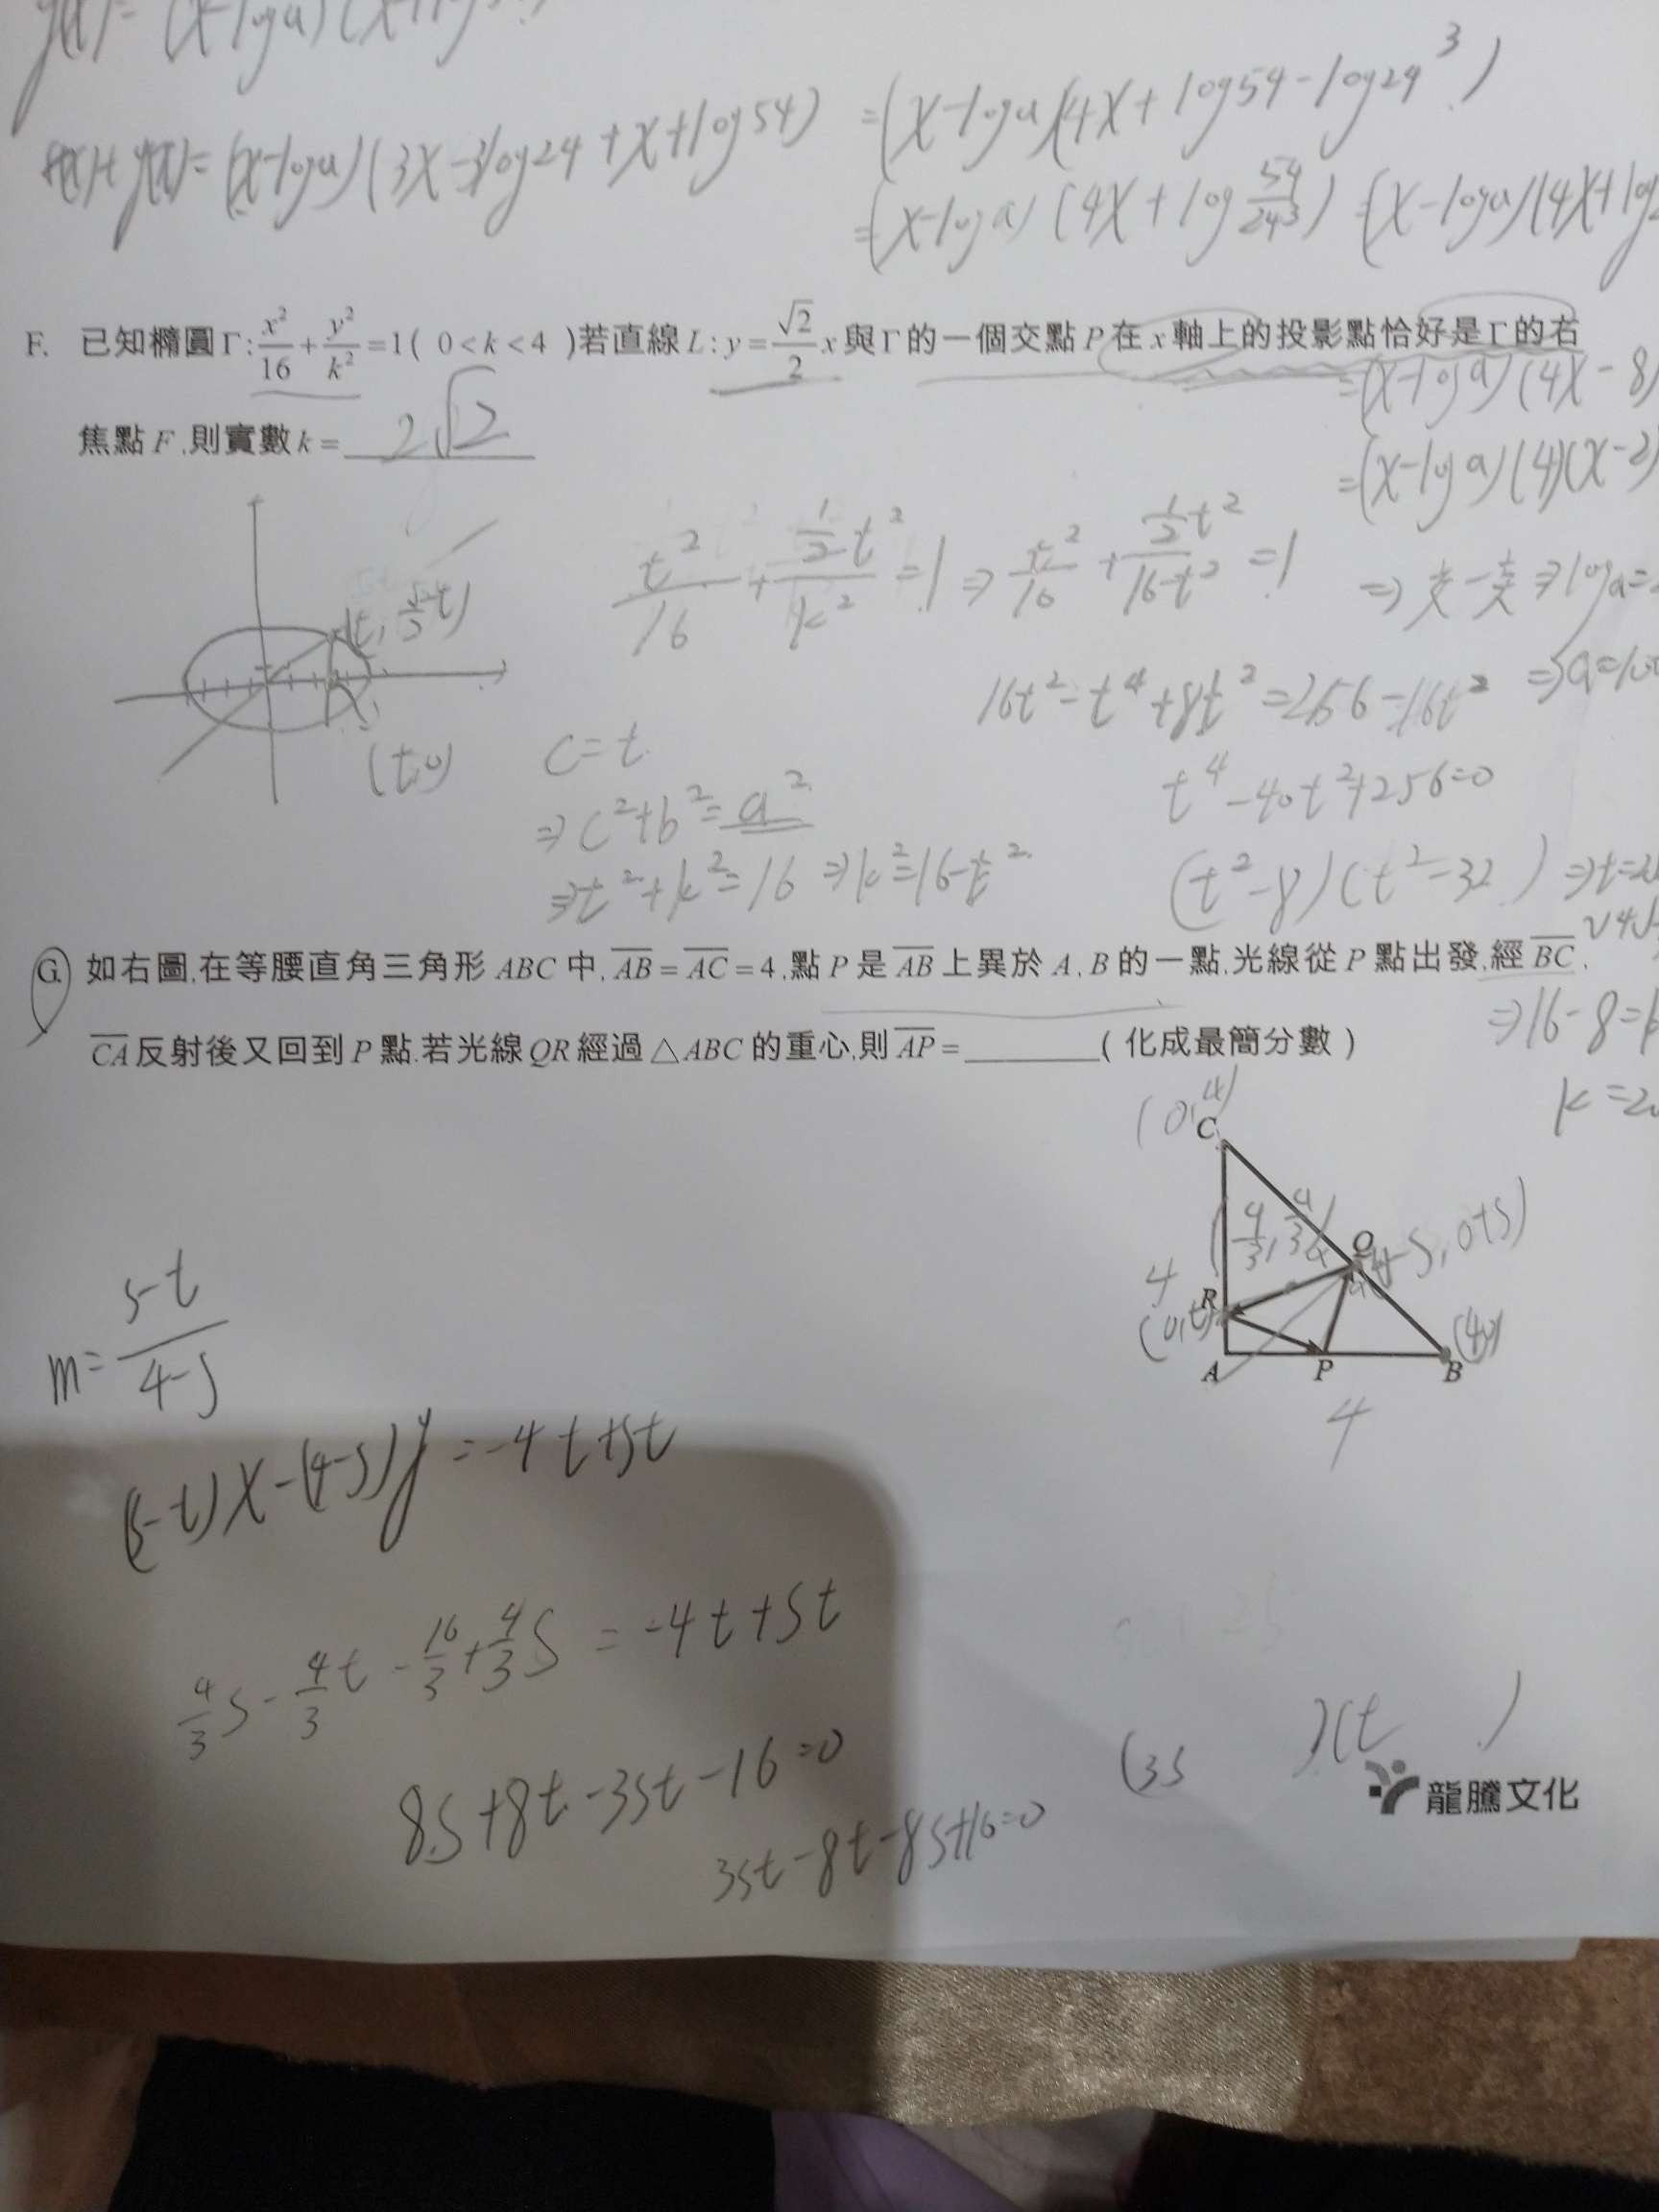 f(x)+g(x)=(x-log a)(3x-3log24+x+log54) =(x-log a)(4x+log54-log24³)
=(x-log a)(4x+log 54/24³) =(x-log a)(4x+log
F. 已知橢圓Γ:x²/16+y²/k²=1(0<k<4)若直線L:y=√2/2 x與Γ的一個交點P在x軸上的投影點恰好是Γ的右
=(x-log a)(4x-8
焦點F,則實數k= 2√2
=(x-log a)(4)(x-2)
t²/16+½t²/k²=1⇒t²/16+½t²/16-t²=1
(t, √2/2 t)
16t²-t⁴+8t²=256-16t²
(t,0)
c=t
t⁴-40t²+256=0
⇒c²+b²=a²
⇒t²+k²=16⇒k²=16-t²
(t²-8)(t²-32)
G. 如右圖,在等腰直角三角形ABC中,AB=AC=4,點P是AB上異於A,B的一點,光線從P點出發,經BC,
⇒16-8=
CA反射後又回到P點.若光線QR經過△ABC的重心,則AP=________(化成最簡分數)
(0,4)
C
(4/3,4/3)
Q
4-s,0+s)
4
R
(0,t)
(4,0)
A P B
4
m=s-t/4-s
(s-t)x-(4-s)y=-4t+st
4/3s-4/3t-16/3+4/3s=-4t+st
8s+8t-3st-16=0
3st-8t-8s+16=0
(3s )(t )
龍騰文化